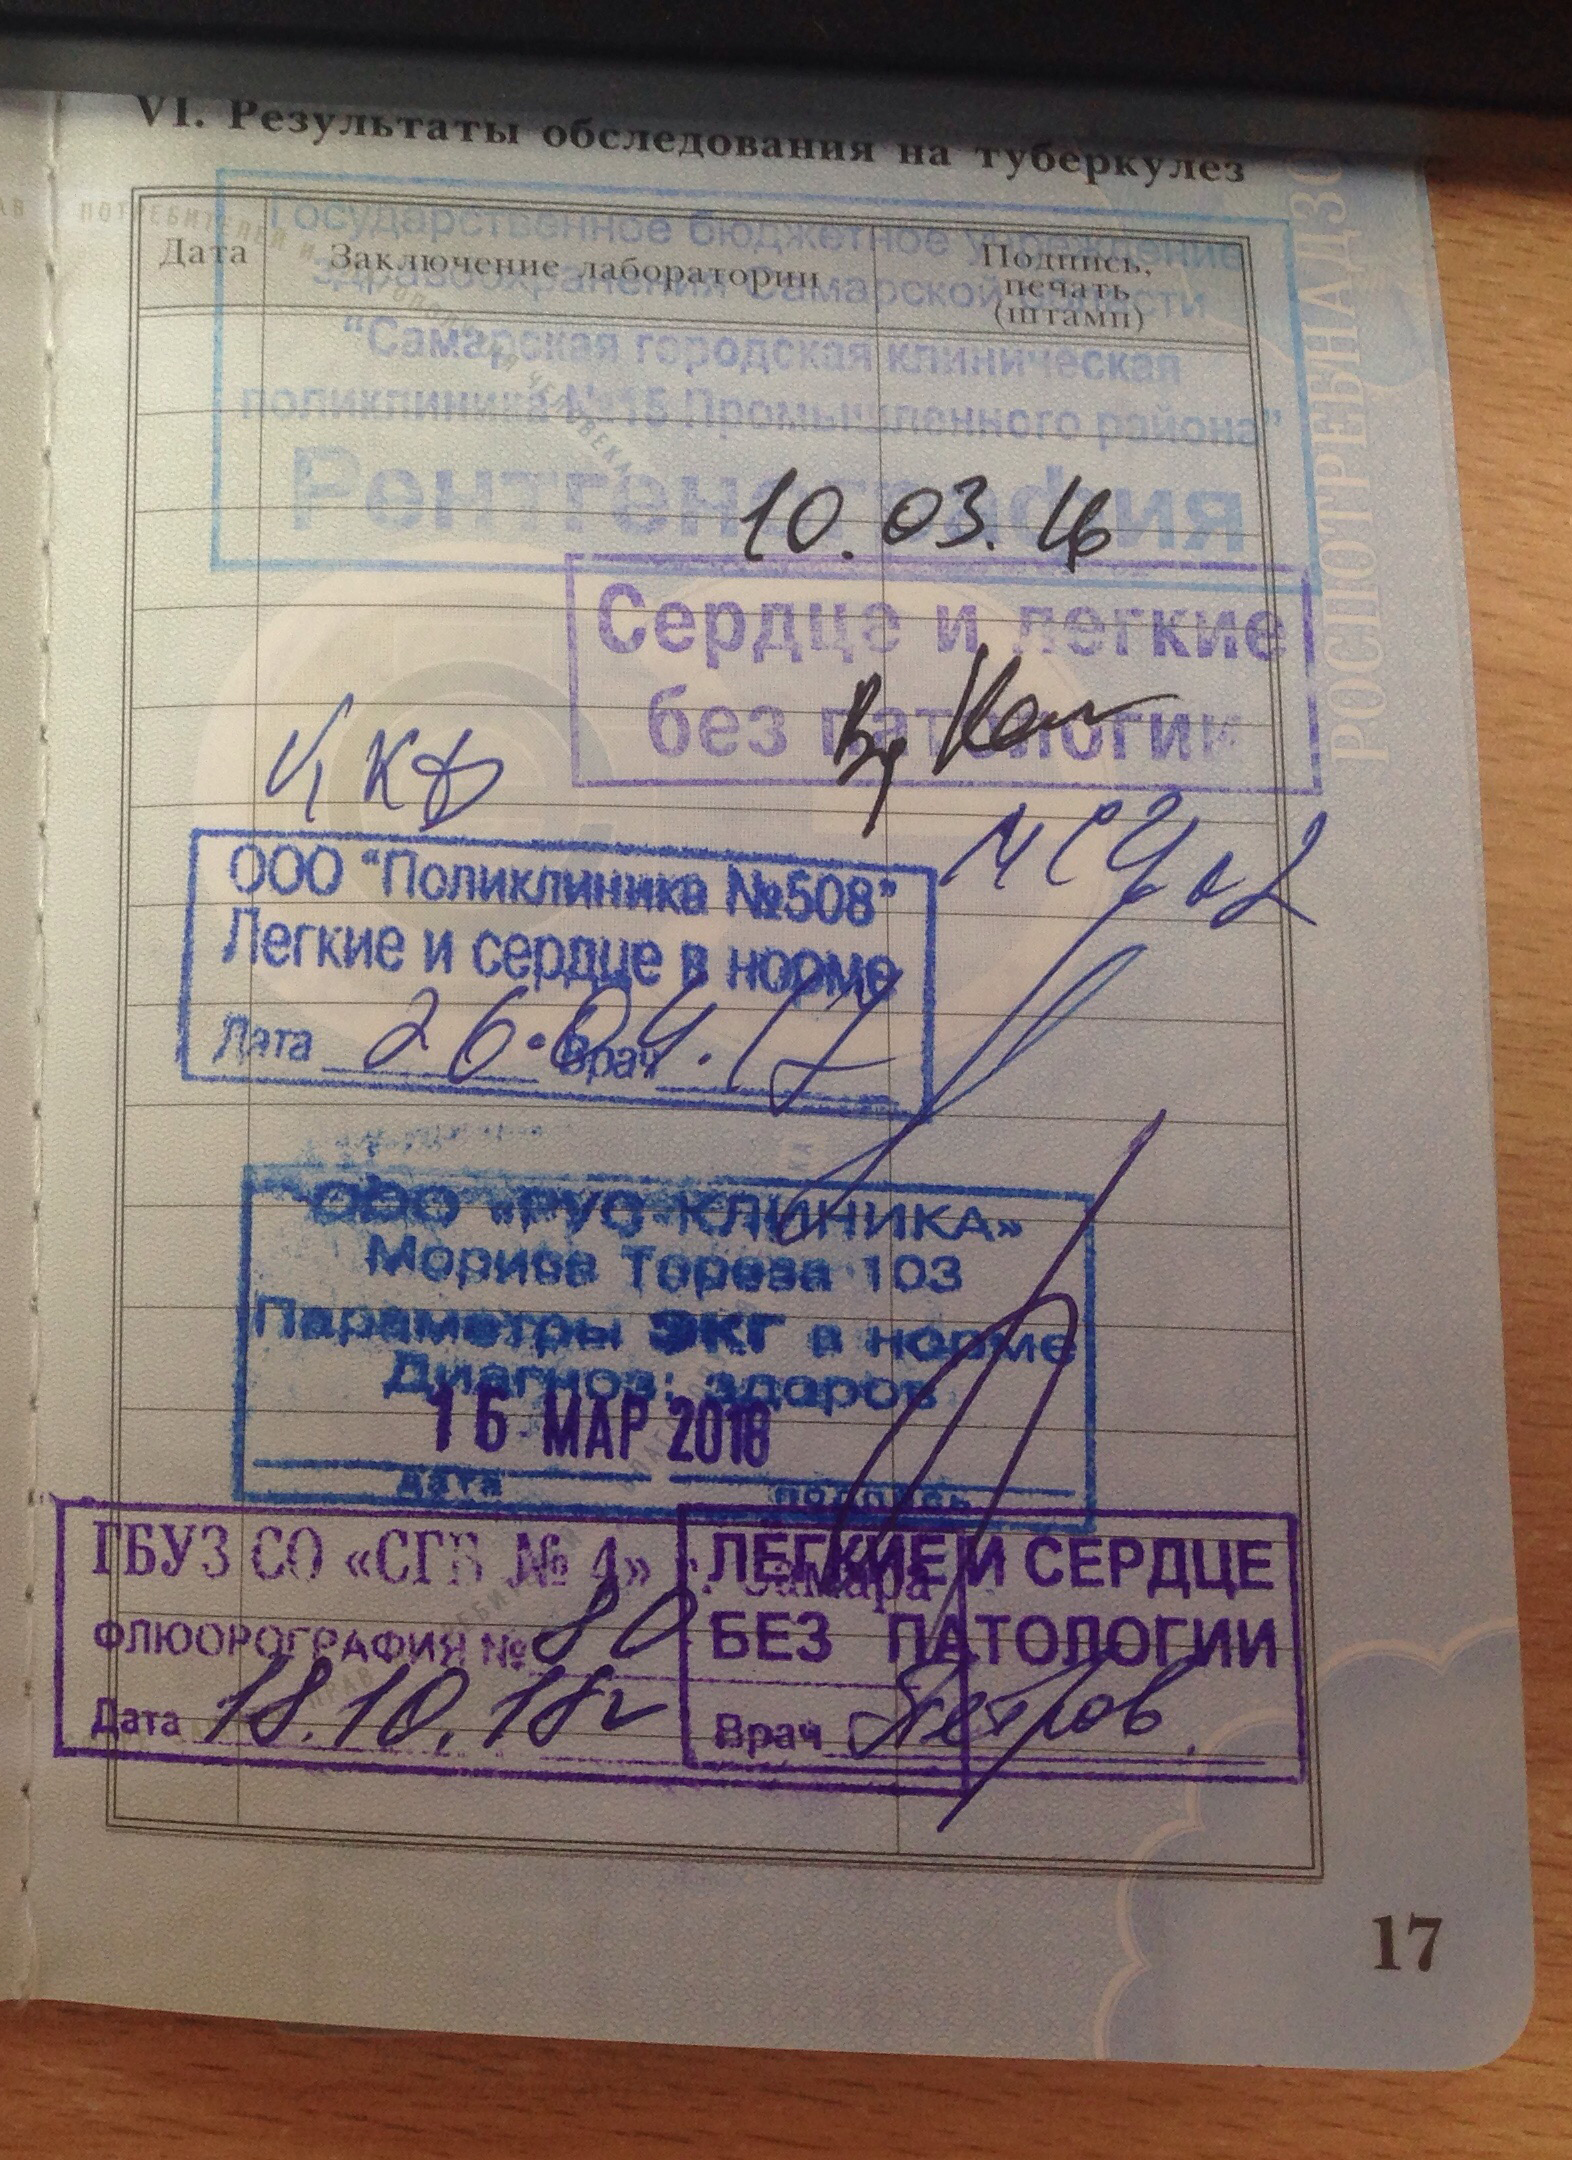 VI. Результаты обследования на туберкулез
Дата
Заключение лаборатории
Подпись,
печать
(штамп)
Государственное бюджетное учреждение
здравоохранения Самарской области
“Самарская городская клиническая
поликлиника №15 Промышленного района”
Рентгенография
10.03.16
Сердце и легкие
без патологии
ООО “Поликлиника №508”
Легкие и сердце в норме
Дата 26.04.17 Врач
ООО «РУС-КЛИНИКА»
Мориса Тореза 103
Параметры ЭКГ в норме
Диагноз: здоров
16 МАР 2018
дата подпись
ГБУЗ СО «СГБ № 4» г. Самара
ФЛЮОРОГРАФИЯ № 80
Дата 18.10.18г
ЛЕГКИЕ И СЕРДЦЕ
БЕЗ ПАТОЛОГИИ
Врач Петров
РОСПОТРЕБНАДЗО
17